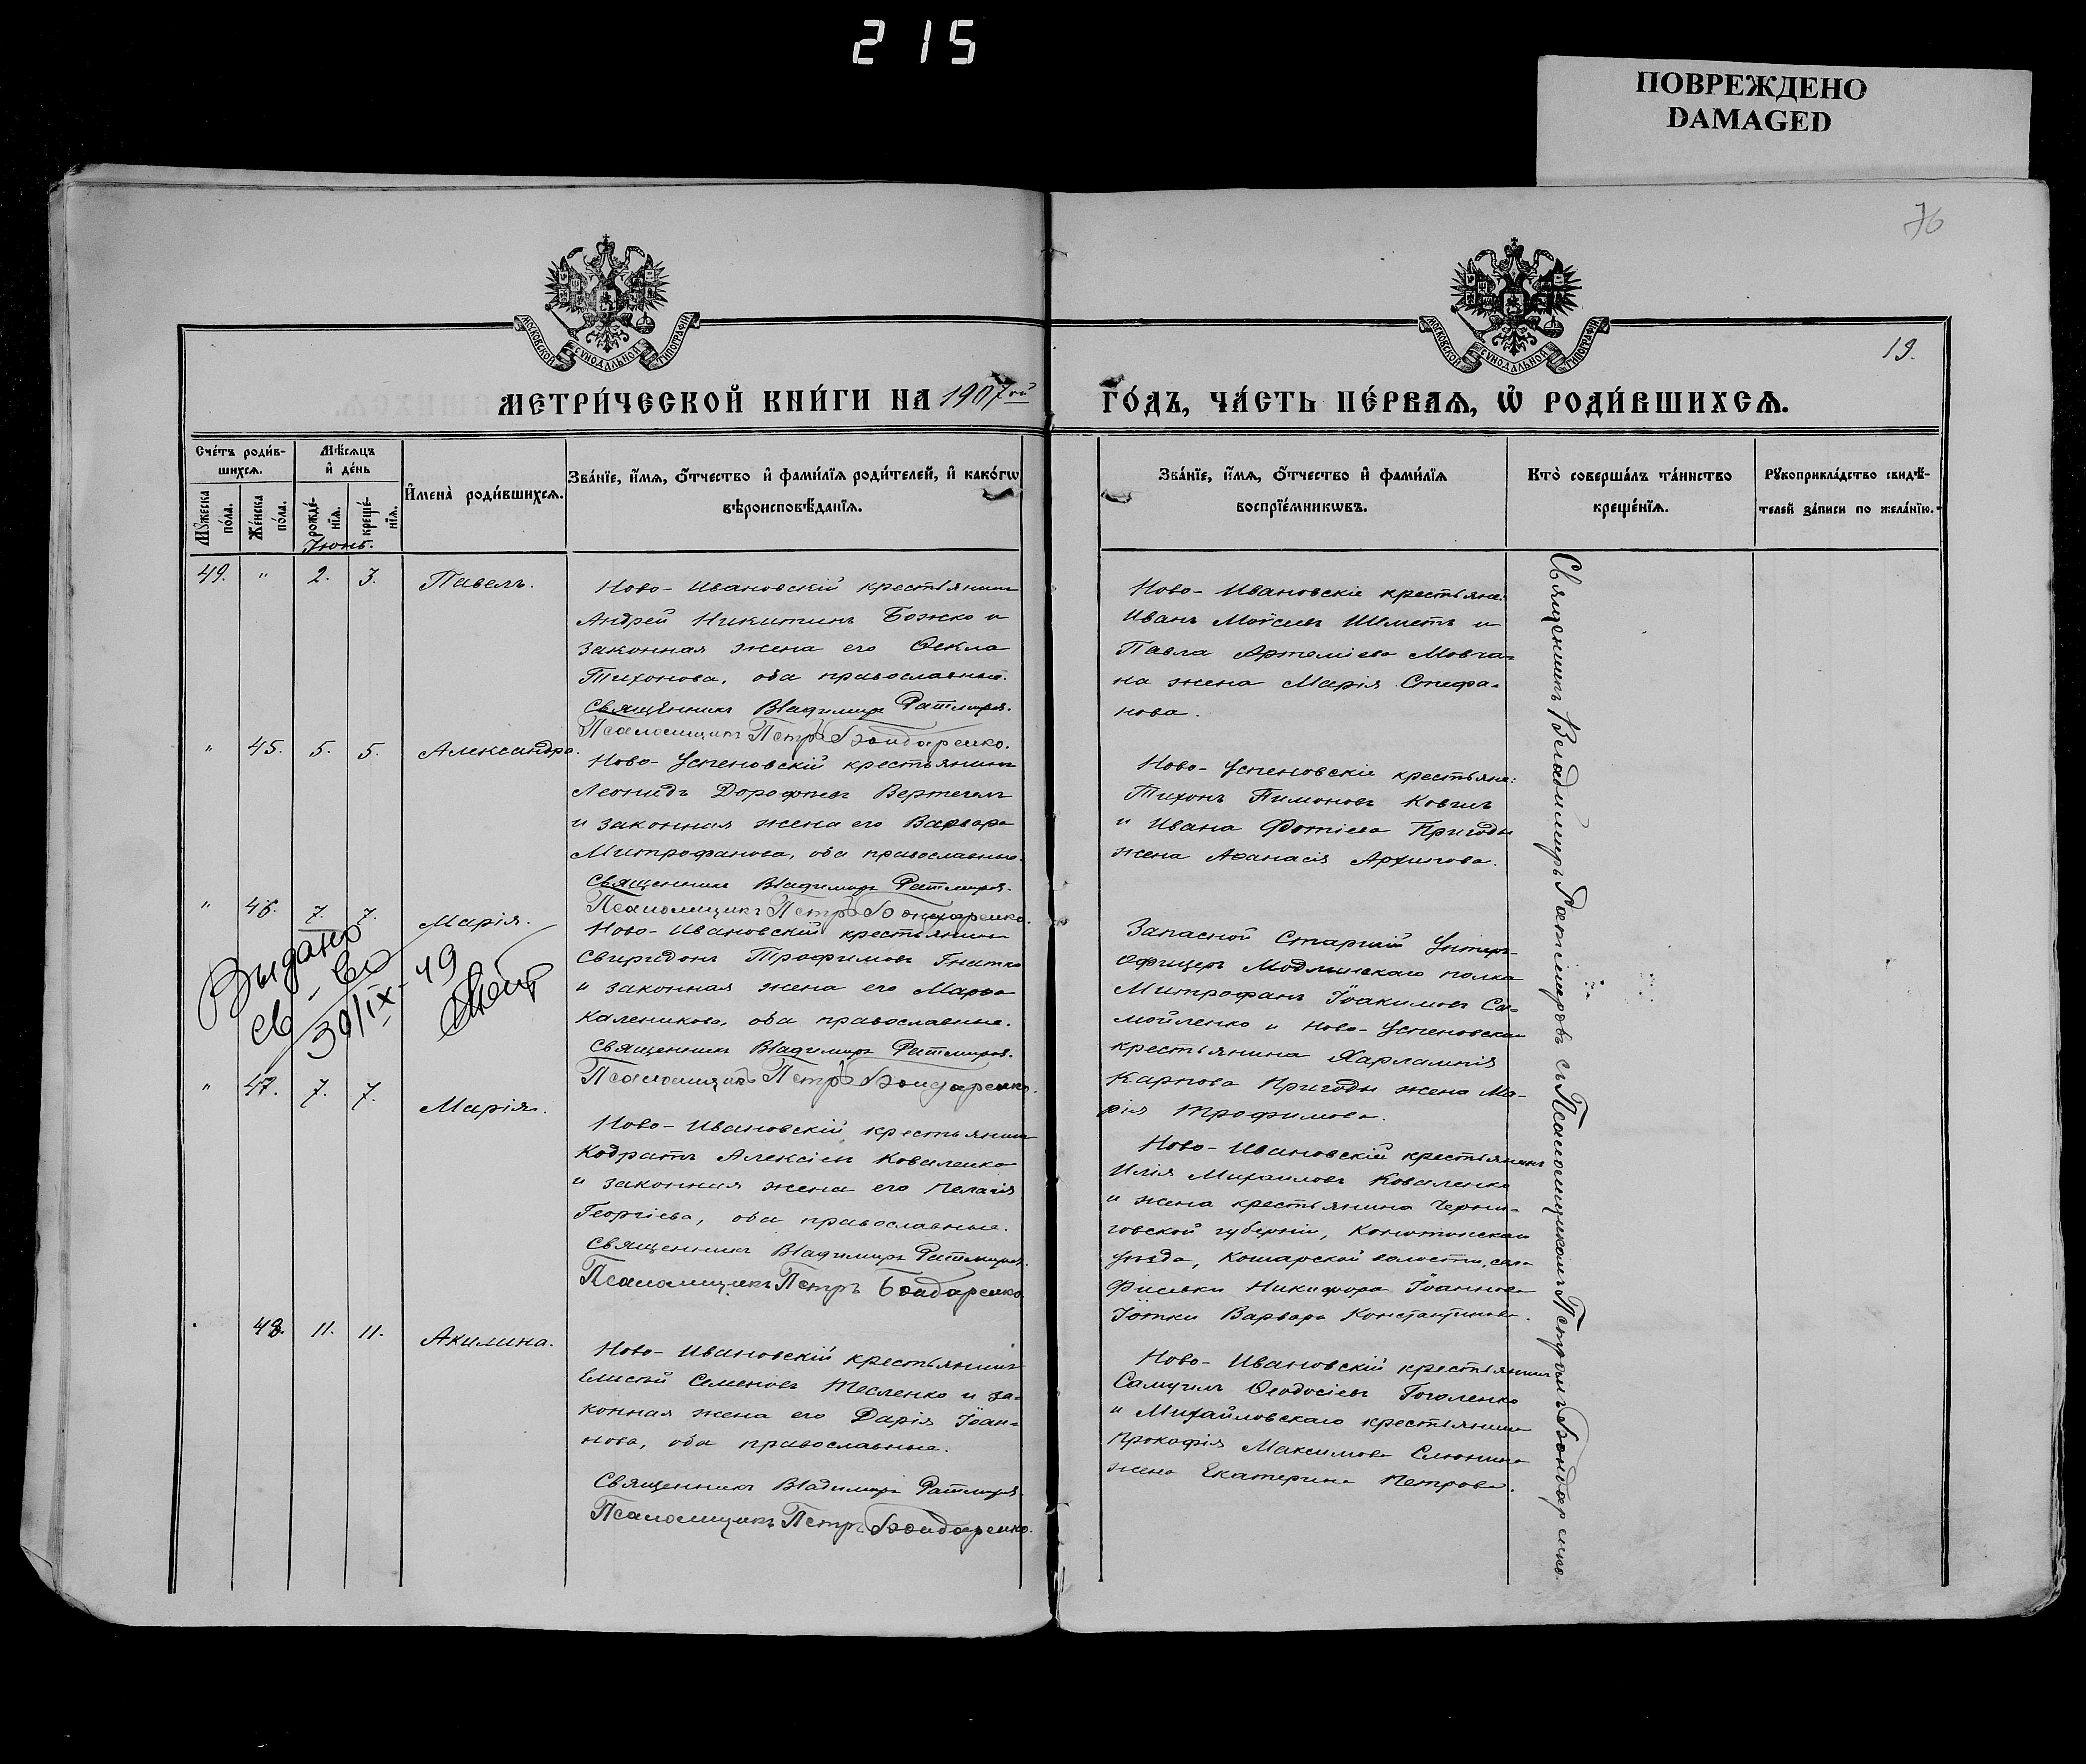 215
ПОВРЕЖДЕНО
DAMAGED
76
МОСКОВСКОЙ СѴНОДАЛЬНОЙ ТИПОГРАФІИ
МОСКОВСКОЙ СѴНОДАЛЬНОЙ ТИПОГРАФІИ
19.
МЕТРИ́ЧЕСКОЙ КНИ́ГИ НА 1907ой
ГО́ДЪ, ЧА́СТЬ ПЕ́РВАѦ, Ѡ҆ РОДИ́ВШИХСѦ.
Сче́тъ роди́в-
шихсѧ.
Мѣ́сѧцъ
и҆ де́нь
Мꙋ́жеска
по́ла.
Же́нска
по́ла.
рожде́-
нїѧ.
креще́-
нїѧ.
И҆мена̀ роди́вшихсѧ.
Зва́нїе, и҆́мѧ, ѻ҆́тчество и҆ фами́лїѧ роди́телей, и҆ како́гѡ
вѣроисповѣ́данїѧ.
Зва́нїе, и҆́мѧ, ѻ҆́тчество и҆ фами́лїѧ
воспрїе́мникѡвъ.
Кто̀ соверша́лъ та́инство
креще́нїѧ.
Рꙋкоприкла́дство свидѣ́-
телей за́писи по жела́нїю.
Іюнь.
49. " 2. 3. Павелъ.
Ново-Ивановскій крестьянинъ
Андрей Никитинъ Божко и
законная жена его Ѳекла
Тихонова, оба православные.
Священникъ Владимиръ Ратмировъ.
Псаломщикъ Петръ Бондаренко.
Ново-Ивановскіе крестьяне:
Иванъ Моѵсеевъ Шметъ и
Павла Артеміева Мовча-
на жена Марія Стефа-
нова.
" 45. 5. 5. Александра.
Ново-Успеновскій крестьянинъ
Леонидъ Дорофеевъ Вертегелъ
и законная жена его Варвара
Митрофанова, оба православные.
Священникъ Владимиръ Ратмировъ.
Псаломщикъ Петръ Бондаренко.
Ново-Успеновскіе крестьяне:
Тихонъ Пимоновъ Ковган
и Ивана Фотіева Пригоды
жена Аѳанасія Архипова.
" 46. 7. 7. Марія.
Ново-Ивановскій крестьянинъ
Свиридонъ Трофимовъ Гнатко
и законная жена его Марѳа
Каленикова, оба православные.
Священникъ Владимиръ Ратмировъ.
Псаломщикъ Петръ Бондаренко.
Запасной Старшій Унтеръ-
офицеръ Модлинскаго полка
Митрофанъ Іоакимовъ Са-
мойленко и Ново-Успеновскаго
крестьянина Харлампія
Карпова Пригоды жена Ма-
рія Трофимова.
Выдано
св-во
30/IX-49
" 47. 7. 7. Марія.
Ново-Ивановскій крестьянинъ
Кодратъ Алексіевъ Коваленко
и законная жена его Пелагія
Георгіева, оба православные.
Священникъ Владимиръ Ратмировъ.
Псаломщикъ Петръ Бондаренко
Ново-Ивановскій крестьянинъ
Илія Михаиловъ Коваленко
и жена крестьянина Черни-
говской губерніи, Конотопскаго
уѣзда, волости, села
Никифора Іоаннова
Варвара Константинова.
48. 11. 11. Акилина.
Ново-Ивановскій крестьянинъ
Елисей Семеновъ Тесленко и за-
конная жена его Дарія Іоан-
нова, оба православные.
Священникъ Владимиръ Ратмировъ
Псаломщикъ Петръ Бондаренко.
Ново-Ивановскій крестьянинъ
Самуилъ Ѳеодосіевъ Гоголенко
и Михайловскаго крестьянина
Прокофія Максимова
жена Екатерина Петрова.
Священникъ Владимиръ Ратмировъ съ Псаломщикомъ Петромъ Бондаренко.